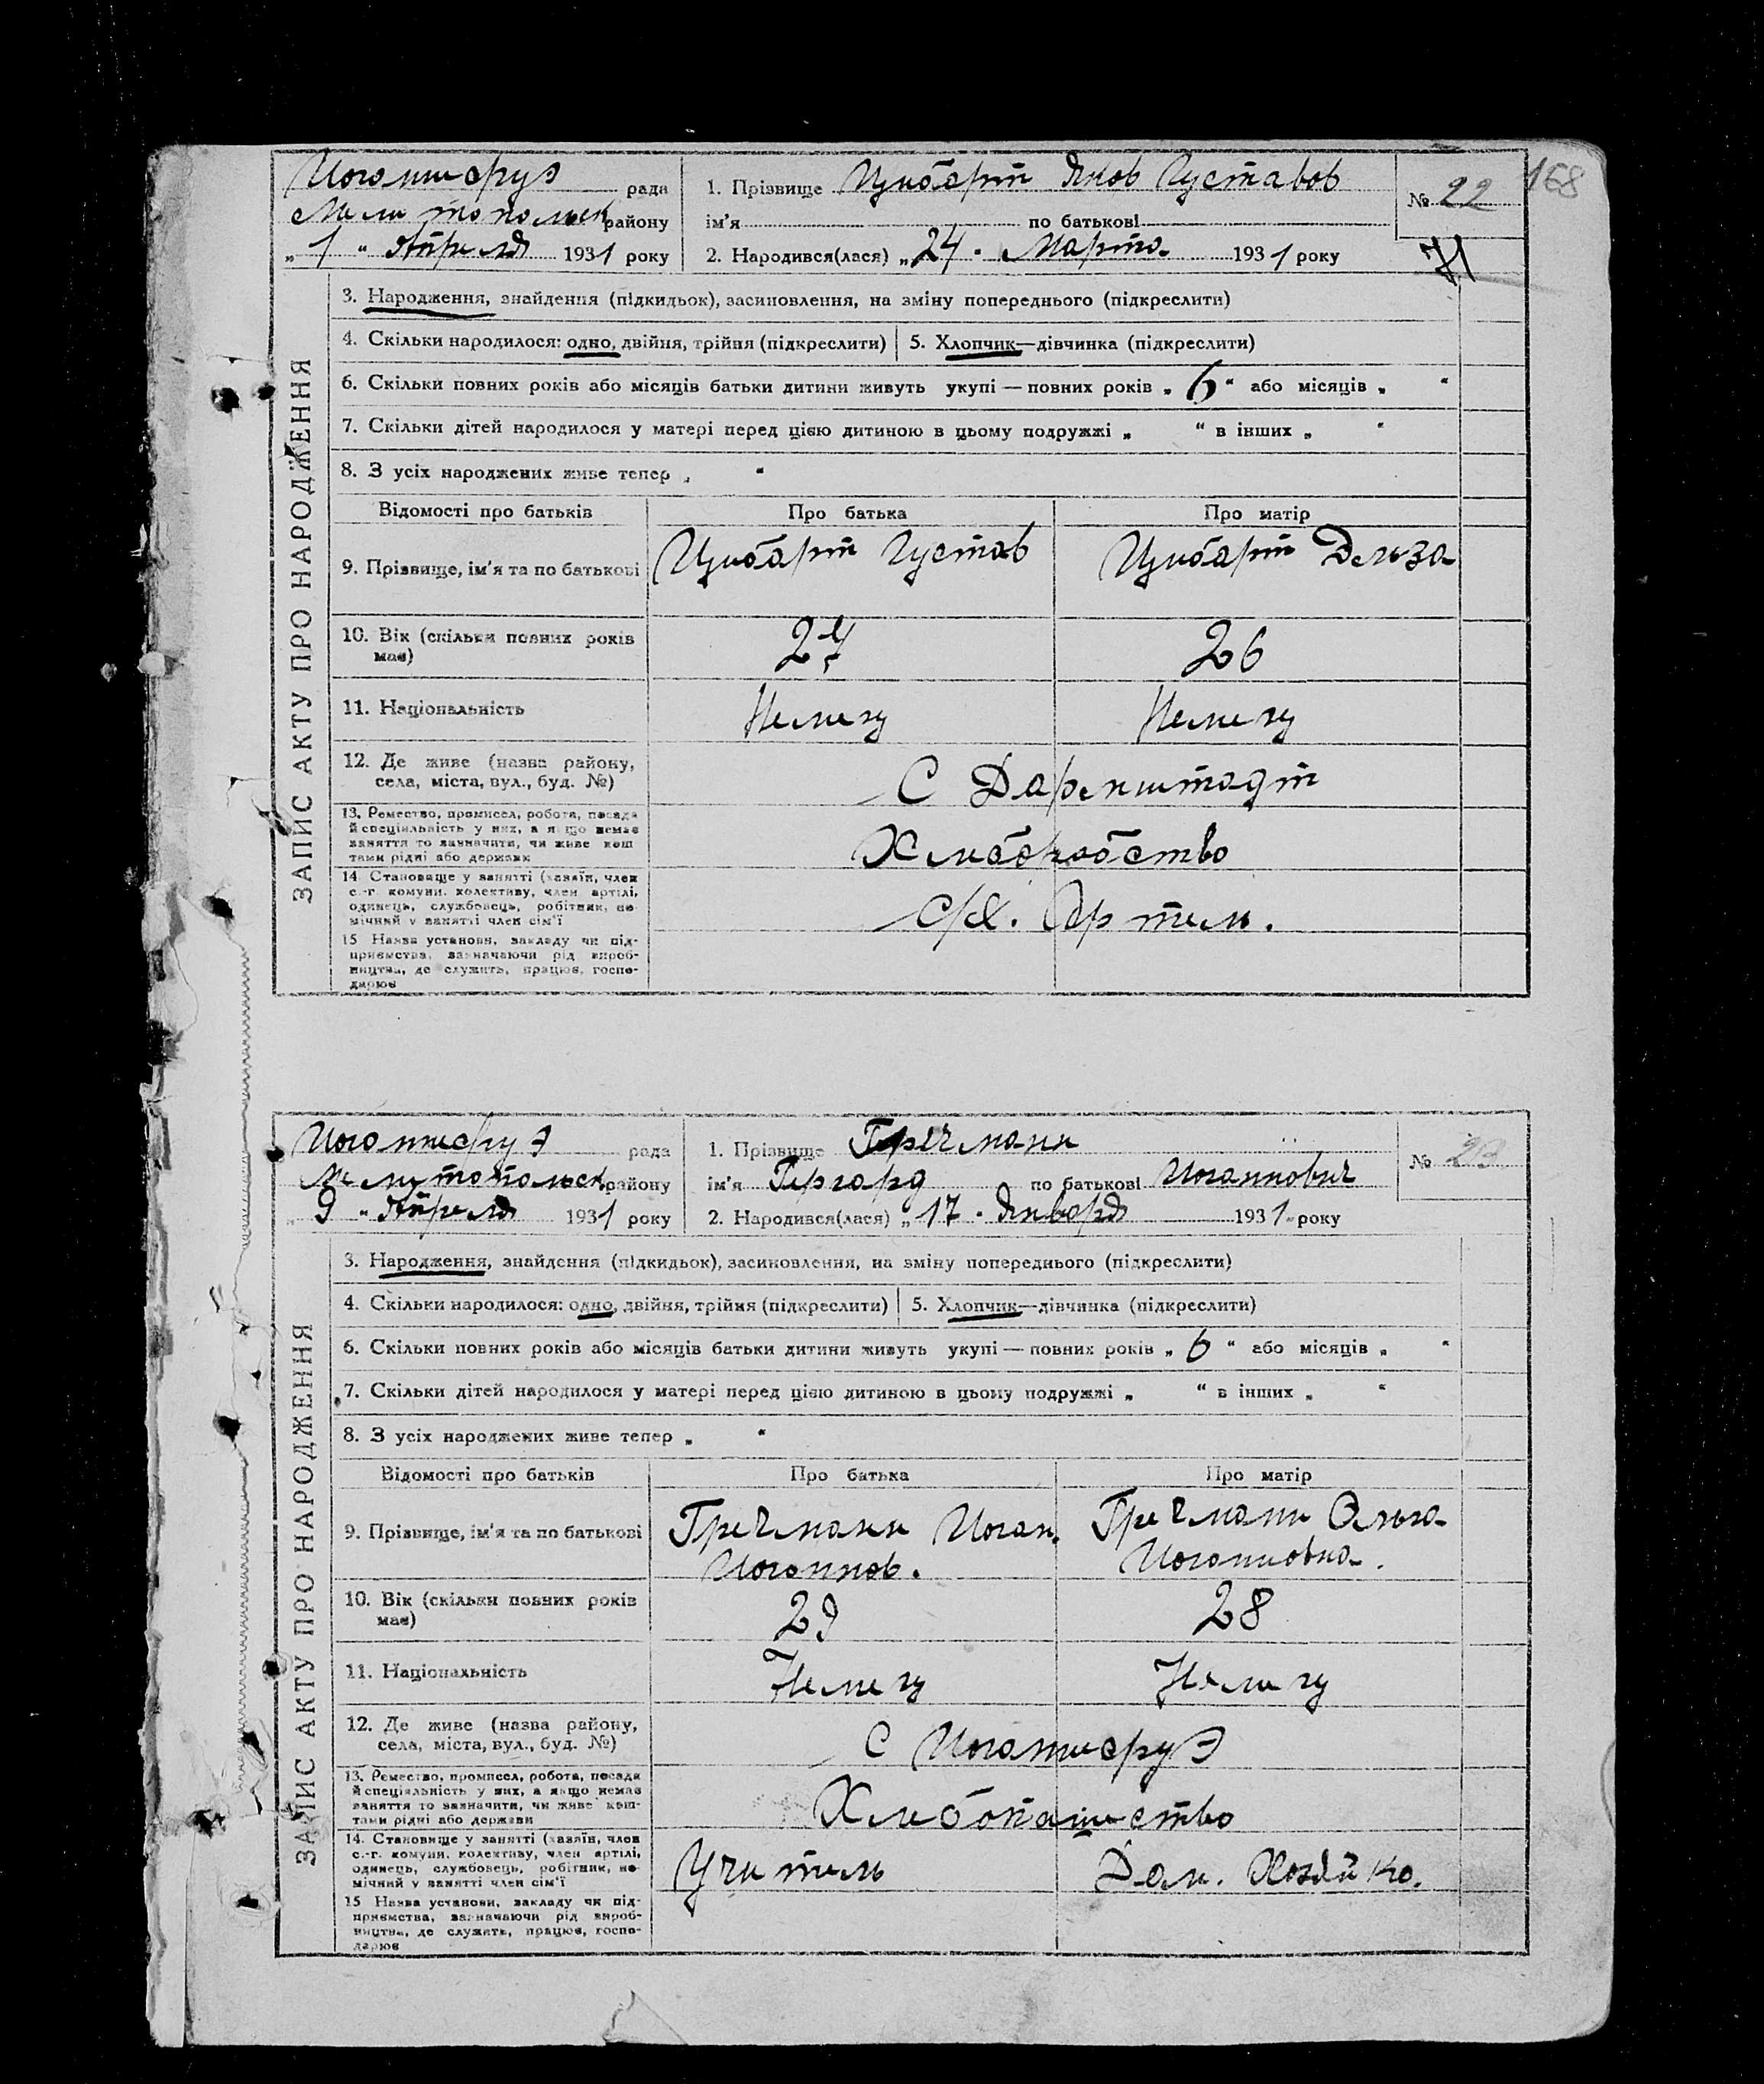 168
Иоганнесруэ рада
Мелитопольск району
„ 1 “ Апреля 1931 року
1. Прізвище Цибарт Яков Густавов
ім'я по батькові
2. Народився(лася) „ 24 . Марта 1931 року
№ 22
71
ЗАПИС АКТУ ПРО НАРОДЖЕННЯ
3. Народження, знайдення (підкидьок), засиновлення, на зміну попереднього (підкреслити)
4. Скільки народилося: одно, двійня, трійня (підкреслити) 5. Хлопчик—дівчинка (підкреслити)
6. Скільки повних років або місяців батьки дитини живуть укупі — повних років „ 6 “ або місяців „ “
7. Скільки дітей народилося у матері перед цією дитиною в цьому подружжі „ “ в інших „ “
8. З усіх народжених живе тепер „ “
Відомості про батьків Про батька Про матір
9. Прізвище, ім'я та по батькові Цибарт Густав Цибарт Дельза
10. Вік (скільки повних років 26
має)
11. Національність Немец Немец
12. Де живе (назва району,
села, міста, вул., буд. №) С Даренштадт
13. Ремество, промисел, робота, посада
й спеціяльність у них, а якщо немає
заняття то зазначити, чи живе кош
тами рідні або держави
Хлеборобство
14. Становище у занятті (хазяїн, член
с.-г. комуни, колективу, член артілі,
одинець, службовець, робітник, по-
мічний у занятті член сім'ї
с/х. Артель.
15 Назва установи, закладу чи під-
приємства, зазначаючи рід вироб-
ництва, де служить, працює, госпо-
дарює
Иоганнесруэ рада
Мелитопольск району
„ 9 “ Апреля 1931 року
1. Прізвище Гречманн
ім'я Гергард по батькові Иоганнович
2. Народився(лася) „ 17 . Января 1931 року
№ 23
ЗАПИС АКТУ ПРО НАРОДЖЕННЯ
3. Народження, знайдення (підкидьок), засиновлення, на зміну попереднього (підкреслити)
4. Скільки народилося: одно, двійня, трійня (підкреслити) 5. Хлопчик—дівчинка (підкреслити)
6. Скільки повних років або місяців батьки дитини живуть укупі — повних років „ 6 “ або місяців „ “
7. Скільки дітей народилося у матері перед цією дитиною в цьому подружжі „ “ в інших „ “
8. З усіх народжених живе тепер „ “
Відомості про батьків Про батька Про матір
9. Прізвище, ім'я та по батькові Гречманн Иоган. Гречманн Ольга
Иоганнов. Иоганновна.
10. Вік (скільки повних років 29 28
має)
11. Національність Немец Немец
12. Де живе (назва району,
села, міста, вул., буд. №) С Иоганнесруэ
13. Ремество, промисел, робота, посада
й спеціяльність у них, а якщо немає
заняття то зазначити, чи живе кош-
тами рідні або держави
Хлебопашество
14. Становище у занятті (хазяїн, член
с.-г. комуни, колективу, член артілі,
одинець, службовець, робітник, по-
мічний у занятті член сім'ї
Учитель Дом. Хозяйка.
15 Назва установи, закладу чи під-
приємства, зазначаючи рід вироб-
ництва, де служить, працює, госпо-
дарює